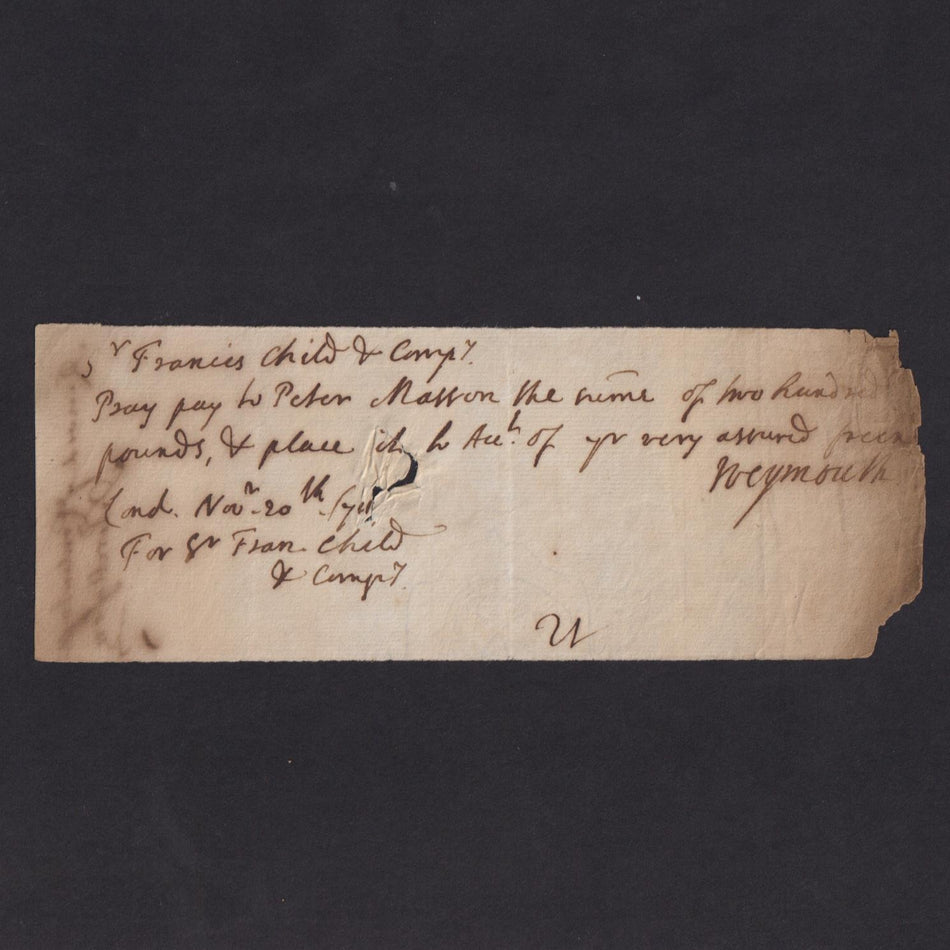 Sr Francis Child & Compy.
Pray pay to Peter Masson the sume of two hundred
pounds, & place it to Acct. of yr very assured frien
Weymouth
Lond. Novr. 20th.
For Sr Fran. Child
& Compy.